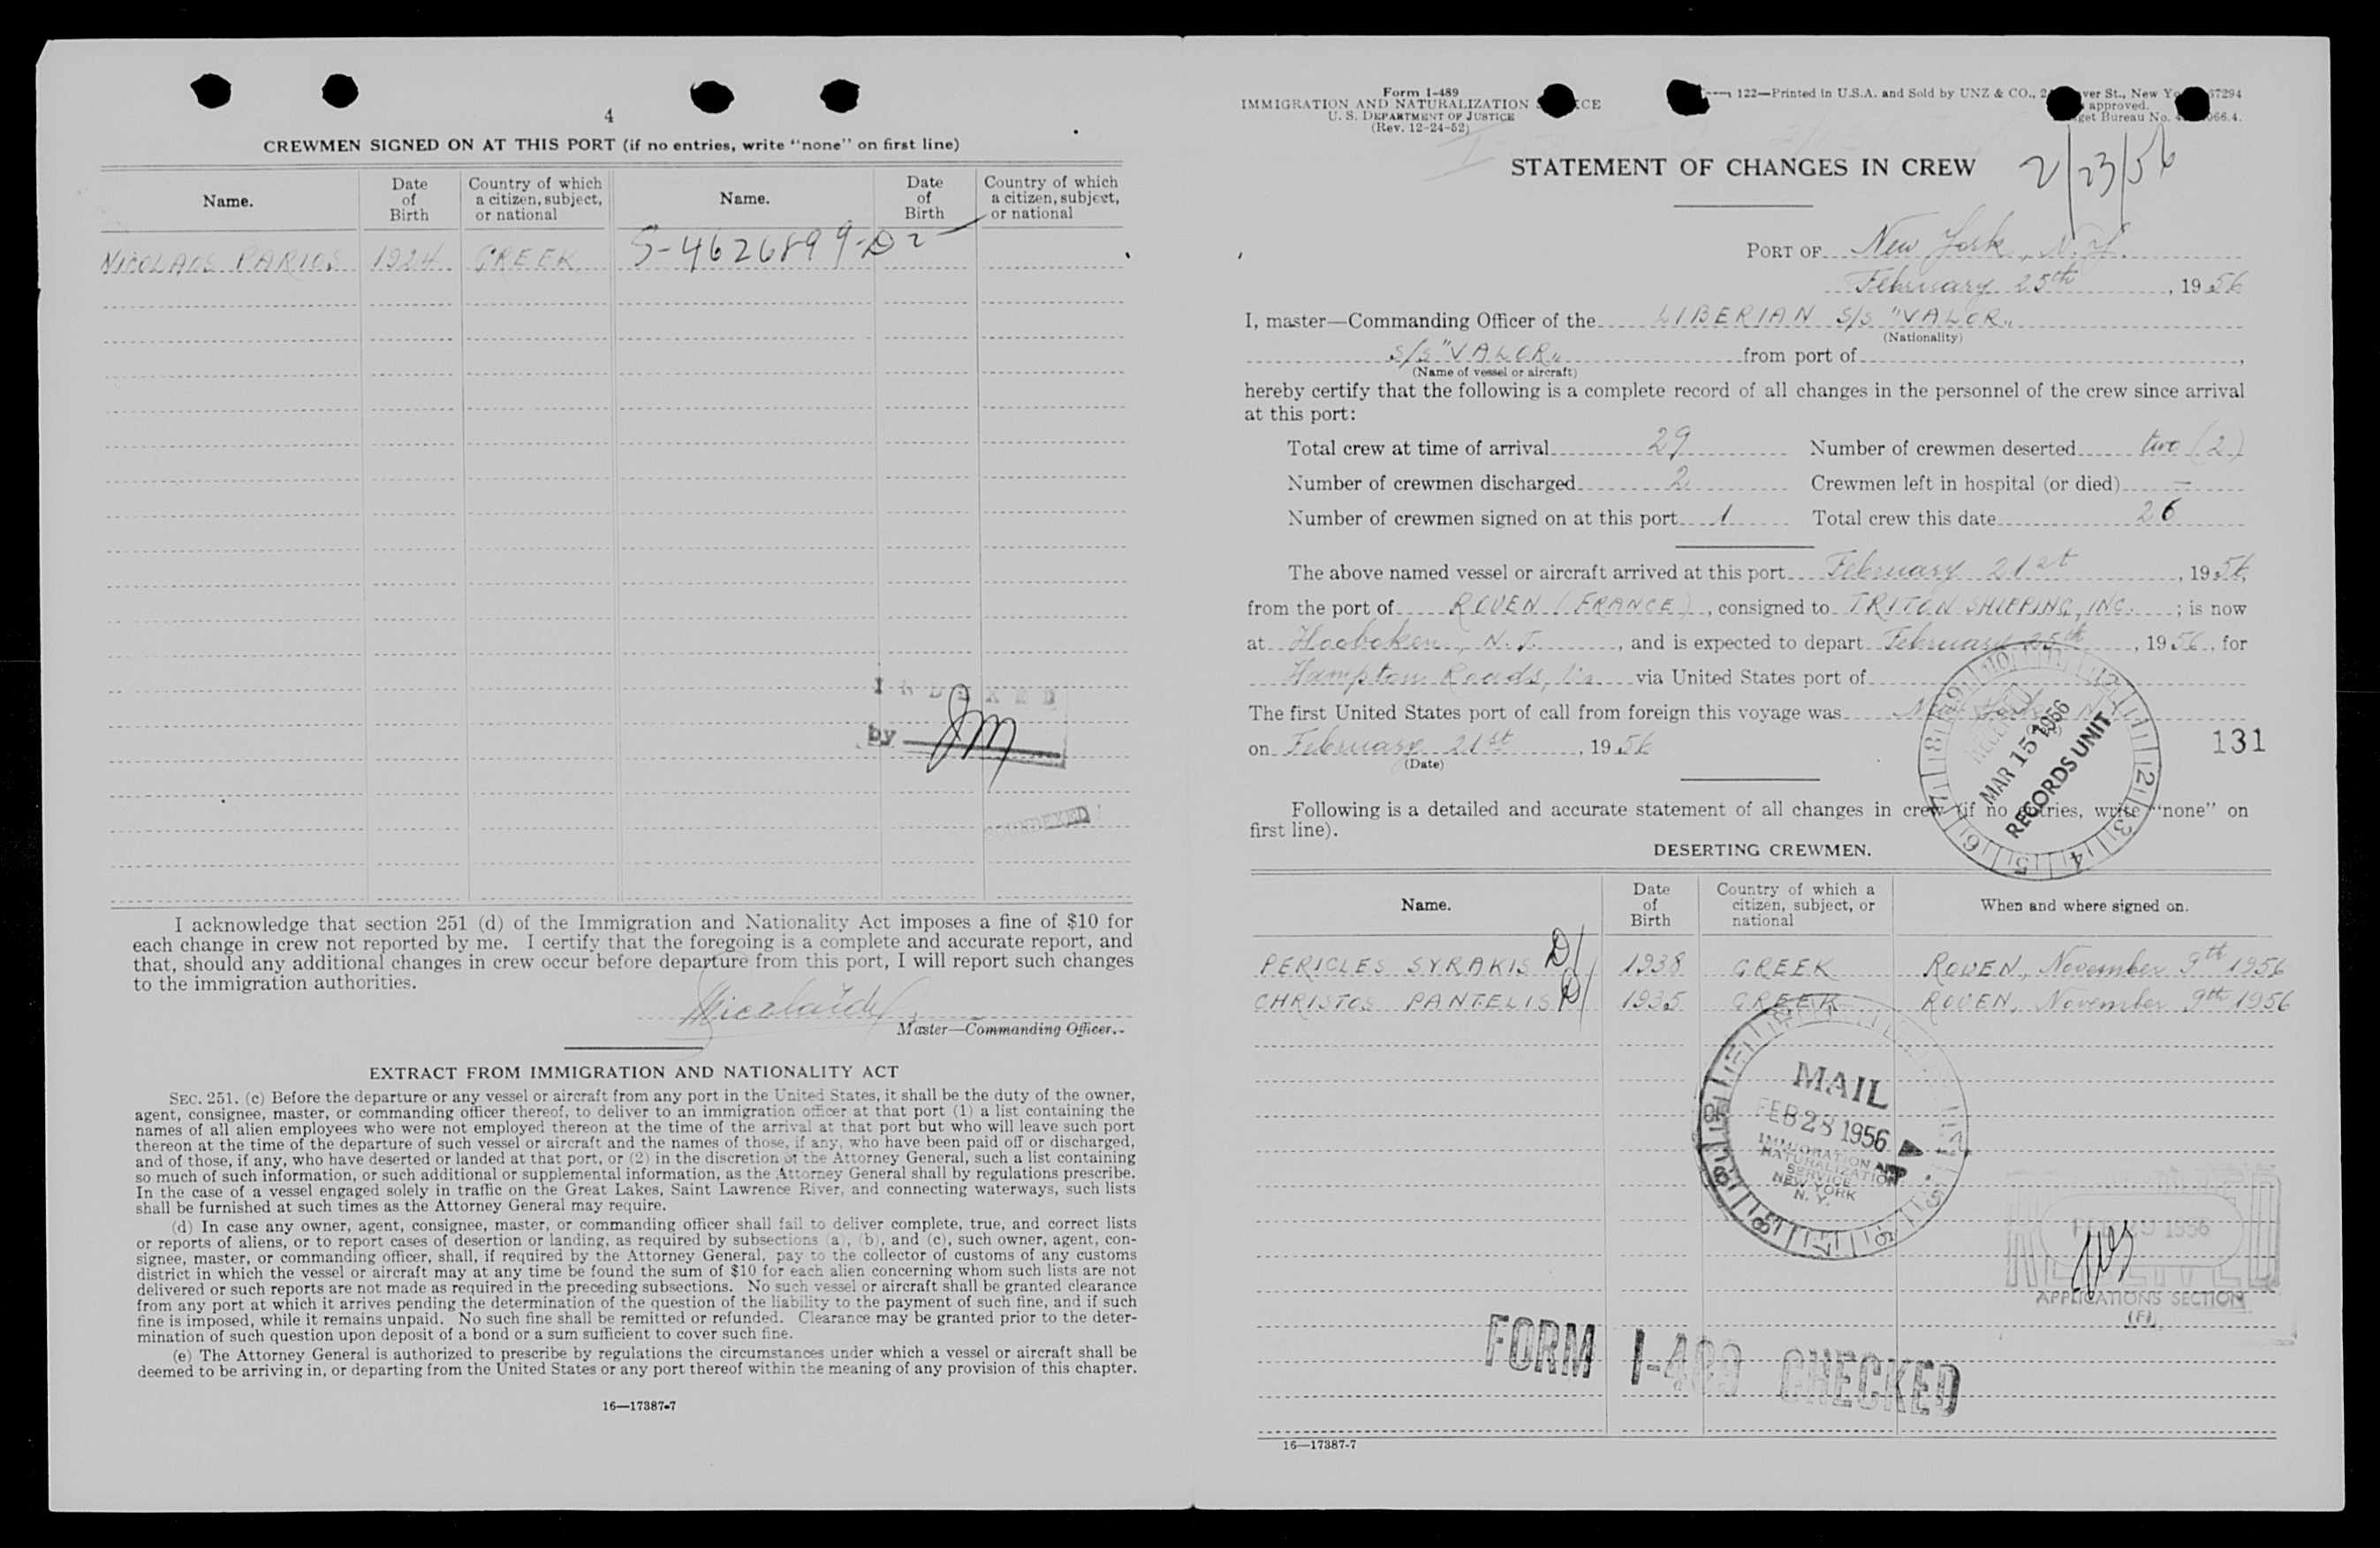 4
CREWMEN SIGNED ON AT THIS PORT (if no entries, write "none" on first line)
Name. Date of Birth Country of which a citizen, subject, or national Name. Date of Birth Country of which a citizen, subject, or national
NICOLAOS PARIOS 1924 GREEK S-4626899-D2
INDEXED
by JM
I acknowledge that section 251 (d) of the Immigration and Nationality Act imposes a fine of $10 for
each change in crew not reported by me. I certify that the foregoing is a complete and accurate report, and
that, should any additional changes in crew occur before departure from this port, I will report such changes
to the immigration authorities.
Master—Commanding Officer.
EXTRACT FROM IMMIGRATION AND NATIONALITY ACT
SEC. 251. (c) Before the departure or any vessel or aircraft from any port in the United States, it shall be the duty of the owner,
agent, consignee, master, or commanding officer thereof, to deliver to an immigration officer at that port (1) a list containing the
names of all alien employees who were not employed thereon at the time of the arrival at that port but who will leave such port
thereon at the time of the departure of such vessel or aircraft and the names of those, if any, who have been paid off or discharged,
and of those, if any, who have deserted or landed at that port, or (2) in the discretion of the Attorney General, such a list containing
so much of such information, or such additional or supplemental information, as the Attorney General shall by regulations prescribe.
In the case of a vessel engaged solely in traffic on the Great Lakes, Saint Lawrence River, and connecting waterways, such lists
shall be furnished at such times as the Attorney General may require.
(d) In case any owner, agent, consignee, master, or commanding officer shall fail to deliver complete, true, and correct lists
or reports of aliens, or to report cases of desertion or landing, as required by subsections (a), (b), and (c), such owner, agent, con-
signee, master, or commanding officer, shall, if required by the Attorney General, pay to the collector of customs of any customs
district in which the vessel or aircraft may at any time be found the sum of $10 for each alien concerning whom such lists are not
delivered or such reports are not made as required in the preceding subsections. No such vessel or aircraft shall be granted clearance
from any port at which it arrives pending the determination of the question of the liability to the payment of such fine, and if such
fine is imposed, while it remains unpaid. No such fine shall be remitted or refunded. Clearance may be granted prior to the deter-
mination of such question upon deposit of a bond or a sum sufficient to cover such fine.
(e) The Attorney General is authorized to prescribe by regulations the circumstances under which a vessel or aircraft shall be
deemed to be arriving in, or departing from the United States or any port thereof within the meaning of any provision of this chapter.
16—17387-7
Form I-489
IMMIGRATION AND NATURALIZATION
U. S. DEPARTMENT OF JUSTICE
(Rev. 12-24-52)
122—Printed in U.S.A. and Sold by UNZ & CO., St., New
approved.
Bureau No.
STATEMENT OF CHANGES IN CREW
2/23/56
PORT OF New York, N.Y.
February 25th, 1956
I, master—Commanding Officer of the LIBERIAN S/S "VALOR"
(Nationality)
S/S "VALOR" from port of ,
(Name of vessel or aircraft)
hereby certify that the following is a complete record of all changes in the personnel of the crew since arrival
at this port:
Total crew at time of arrival 29 Number of crewmen deserted two (2)
Number of crewmen discharged 2 Crewmen left in hospital (or died) —
Number of crewmen signed on at this port 1 Total crew this date 26
The above named vessel or aircraft arrived at this port February 21st, 1956,
from the port of ROUEN (FRANCE), consigned to TRITON SHIPPING, INC. ; is now
at Hooboken, N.J., and is expected to depart February 25th, 1956, for
Hampton Roads, Va. via United States port of
The first United States port of call from foreign this voyage was New York, N.Y.
on February 21st, 1956
(Date)
MAR 15 1956
RECORDS UNIT
131
Following is a detailed and accurate statement of all changes in crew (if no entries, write "none" on
first line).
DESERTING CREWMEN.
Name. Date of Birth Country of which a citizen, subject, or national When and where signed on.
PERICLES SYRAKIS D/ 1938 GREEK ROUEN, November 9th 1956
CHRISTOS PANTELIS D/ 1935 GREEK ROUEN, November 9th 1956
MAIL
FEB 28 1956
IMMIGRATION AND
NATURALIZATION
SERVICE
NEW YORK
N. Y.
RECEIVED
1956
APPLICATIONS SECTION
(F)
FORM I-489 CHECKED
16—17387-7